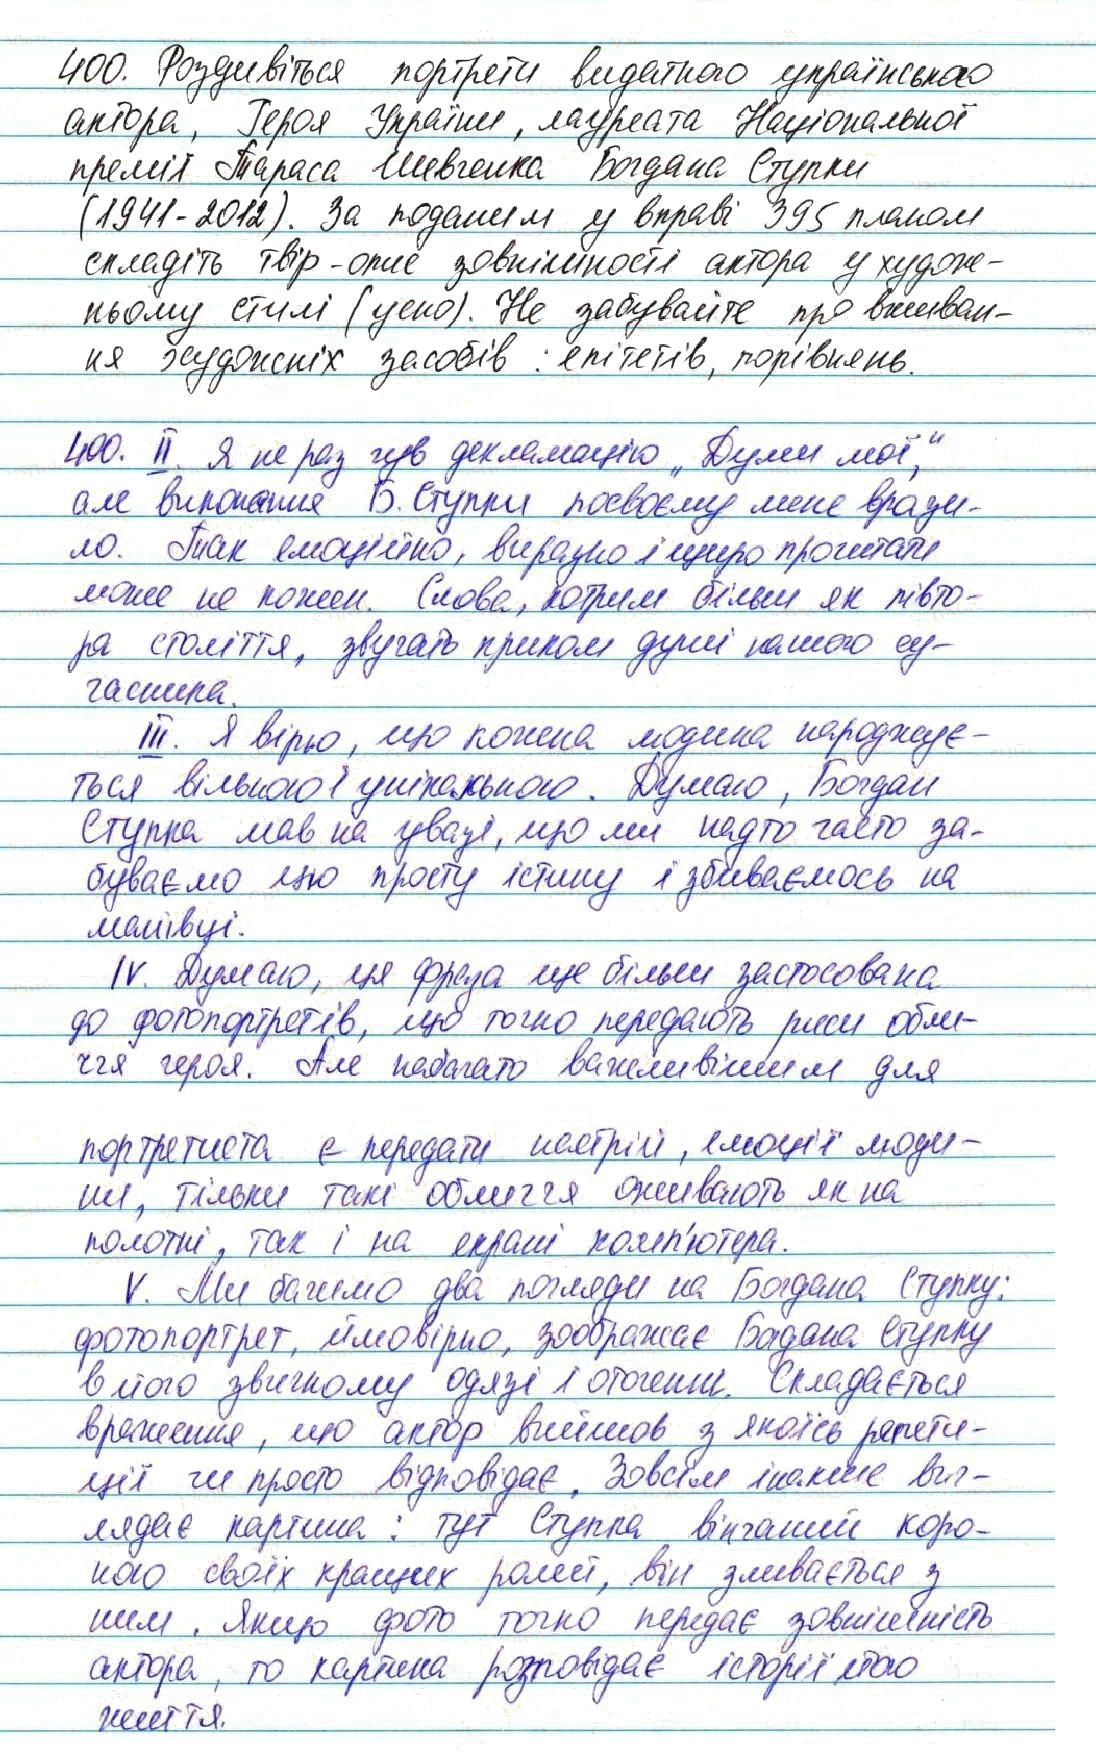 400. Роздивіться портрети видатного українського
актора, Героя України, лауреата Національної
премії Тараса Шевченка Богдана Ступки
(1941-2012). За поданим у вправі 395 планом
складіть твір-опис зовнішності актора у художе-
ньому стилі (усно). Не забувайте про вживан-
ня художніх засобів: епітетів, порівнянь.
400. II. Я не раз чув декламацію „Думи мої,"
але виконання Б. Ступки посвоєму мене врази-
ло. Так емоційно, виразно і щиро прочитати
може не кожен. Слова, котрим більш як півто-
ра століття, звучать криком душі нашого су-
часника.
III. Я вірю, що кожна людина народжує-
ться вільною і унікальною. Думаю, Богдан
Ступка мав на увазі, що ми надто часто за-
буваємо цю просту істину і збиваємось на
манівці.
IV. Думаю, ця фраза ще більш застосована
до фотопортретів, що точно передають риси обли-
ччя героя. Але набагато важливішим для
портретиста є передати настрій, емоції люди-
ни, тільки такі обличчя оживають як на
полотні, так і на екрані комп'ютера.
V. Ми бачимо два погляди на Богдана Ступку:
фотопортрет, ймовірно, зображає Богдана Ступку
в його звичному одязі і оточенні. Складається
враження, що актор вийшов з якоїсь репети-
ції чи просто відповідає. Зовсім інакше виг-
лядає картина: тут Ступка вінчаний коро-
ною своїх кращих ролей, він зливається з
ним. Якщо фото точно передає зовнішність
актора, то картина розповідає історії його
життя.